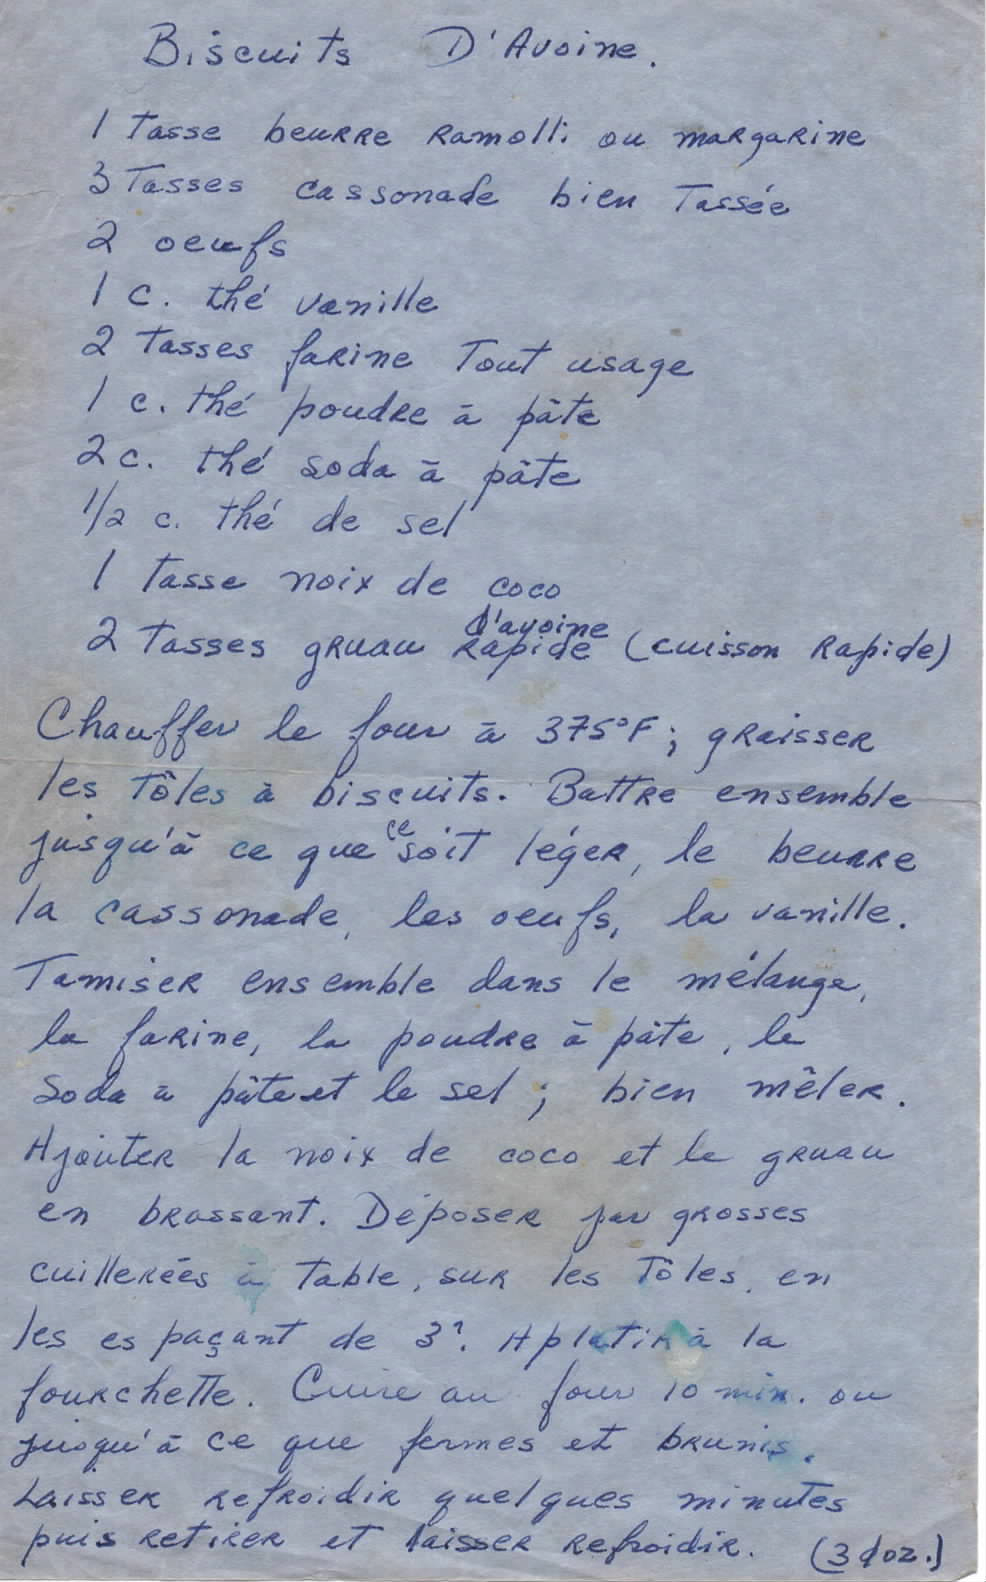 Biscuits D'Avoine.
1 Tasse beurre ramolli ou margarine
3 Tasses cassonade bien Tassée
2 oeufs
1 c. thé vanille
2 Tasses farine Tout usage
1 c. thé poudre à pâte
2 c. thé soda à pâte
1/2 c. thé de sel
1 Tasse noix de coco
d'avoine
2 Tasses gruau rapide (cuisson rapide)
Chauffer le four à 375°F ; graisser
les tôles à biscuits. Battre ensemble
jusqu'à ce que ce soit léger, le beurre
la cassonade, les oeufs, la vanille.
Tamiser ensemble dans le mélange,
la farine, la poudre à pâte, le
soda à pâte et le sel ; bien mêler.
Ajouter la noix de coco et le gruau
en brassant. Déposer par grosses
cuillerées à table, sur les Tôles, en
les espaçant de 3". Aplatir à la
fourchette. Cuire au four 10 min. ou
jusqu'à ce que fermes et brunis.
Laisser refroidir quelques minutes
puis retirer et laisser refroidir. (3 doz.)